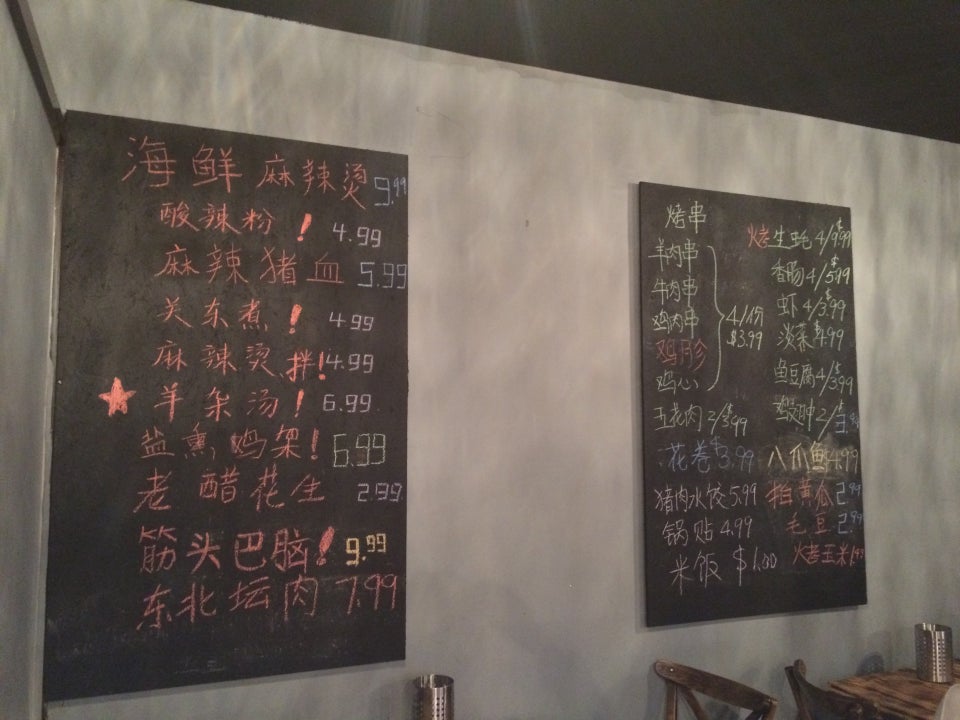 海鲜麻辣烫 9.99
酸辣粉! 4.99
麻辣猪血 5.99
关东煮! 4.99
麻辣烫拌! 4.99
羊杂汤! 6.99
盐熏鸡架! 6.99
老醋花生 2.99
筋头巴脑! 9.99
东北坛肉 7.99
烤串
羊肉串
牛肉串
鸡肉串
鸡胗
鸡心
4/份
$3.99
五花肉 2/$3.99
花卷 $3.99
猪肉水饺 5.99
锅贴 4.99
米饭 $1.00
烤生蚝 4/$9.99
香肠 4/$5.99
虾 4/$3.99
淡菜 $4.99
鱼豆腐 4/$3.99
2/$3.99
八爪鱼 4.99
拍黄瓜 2.99
毛豆 2.99
烤玉米 1.99